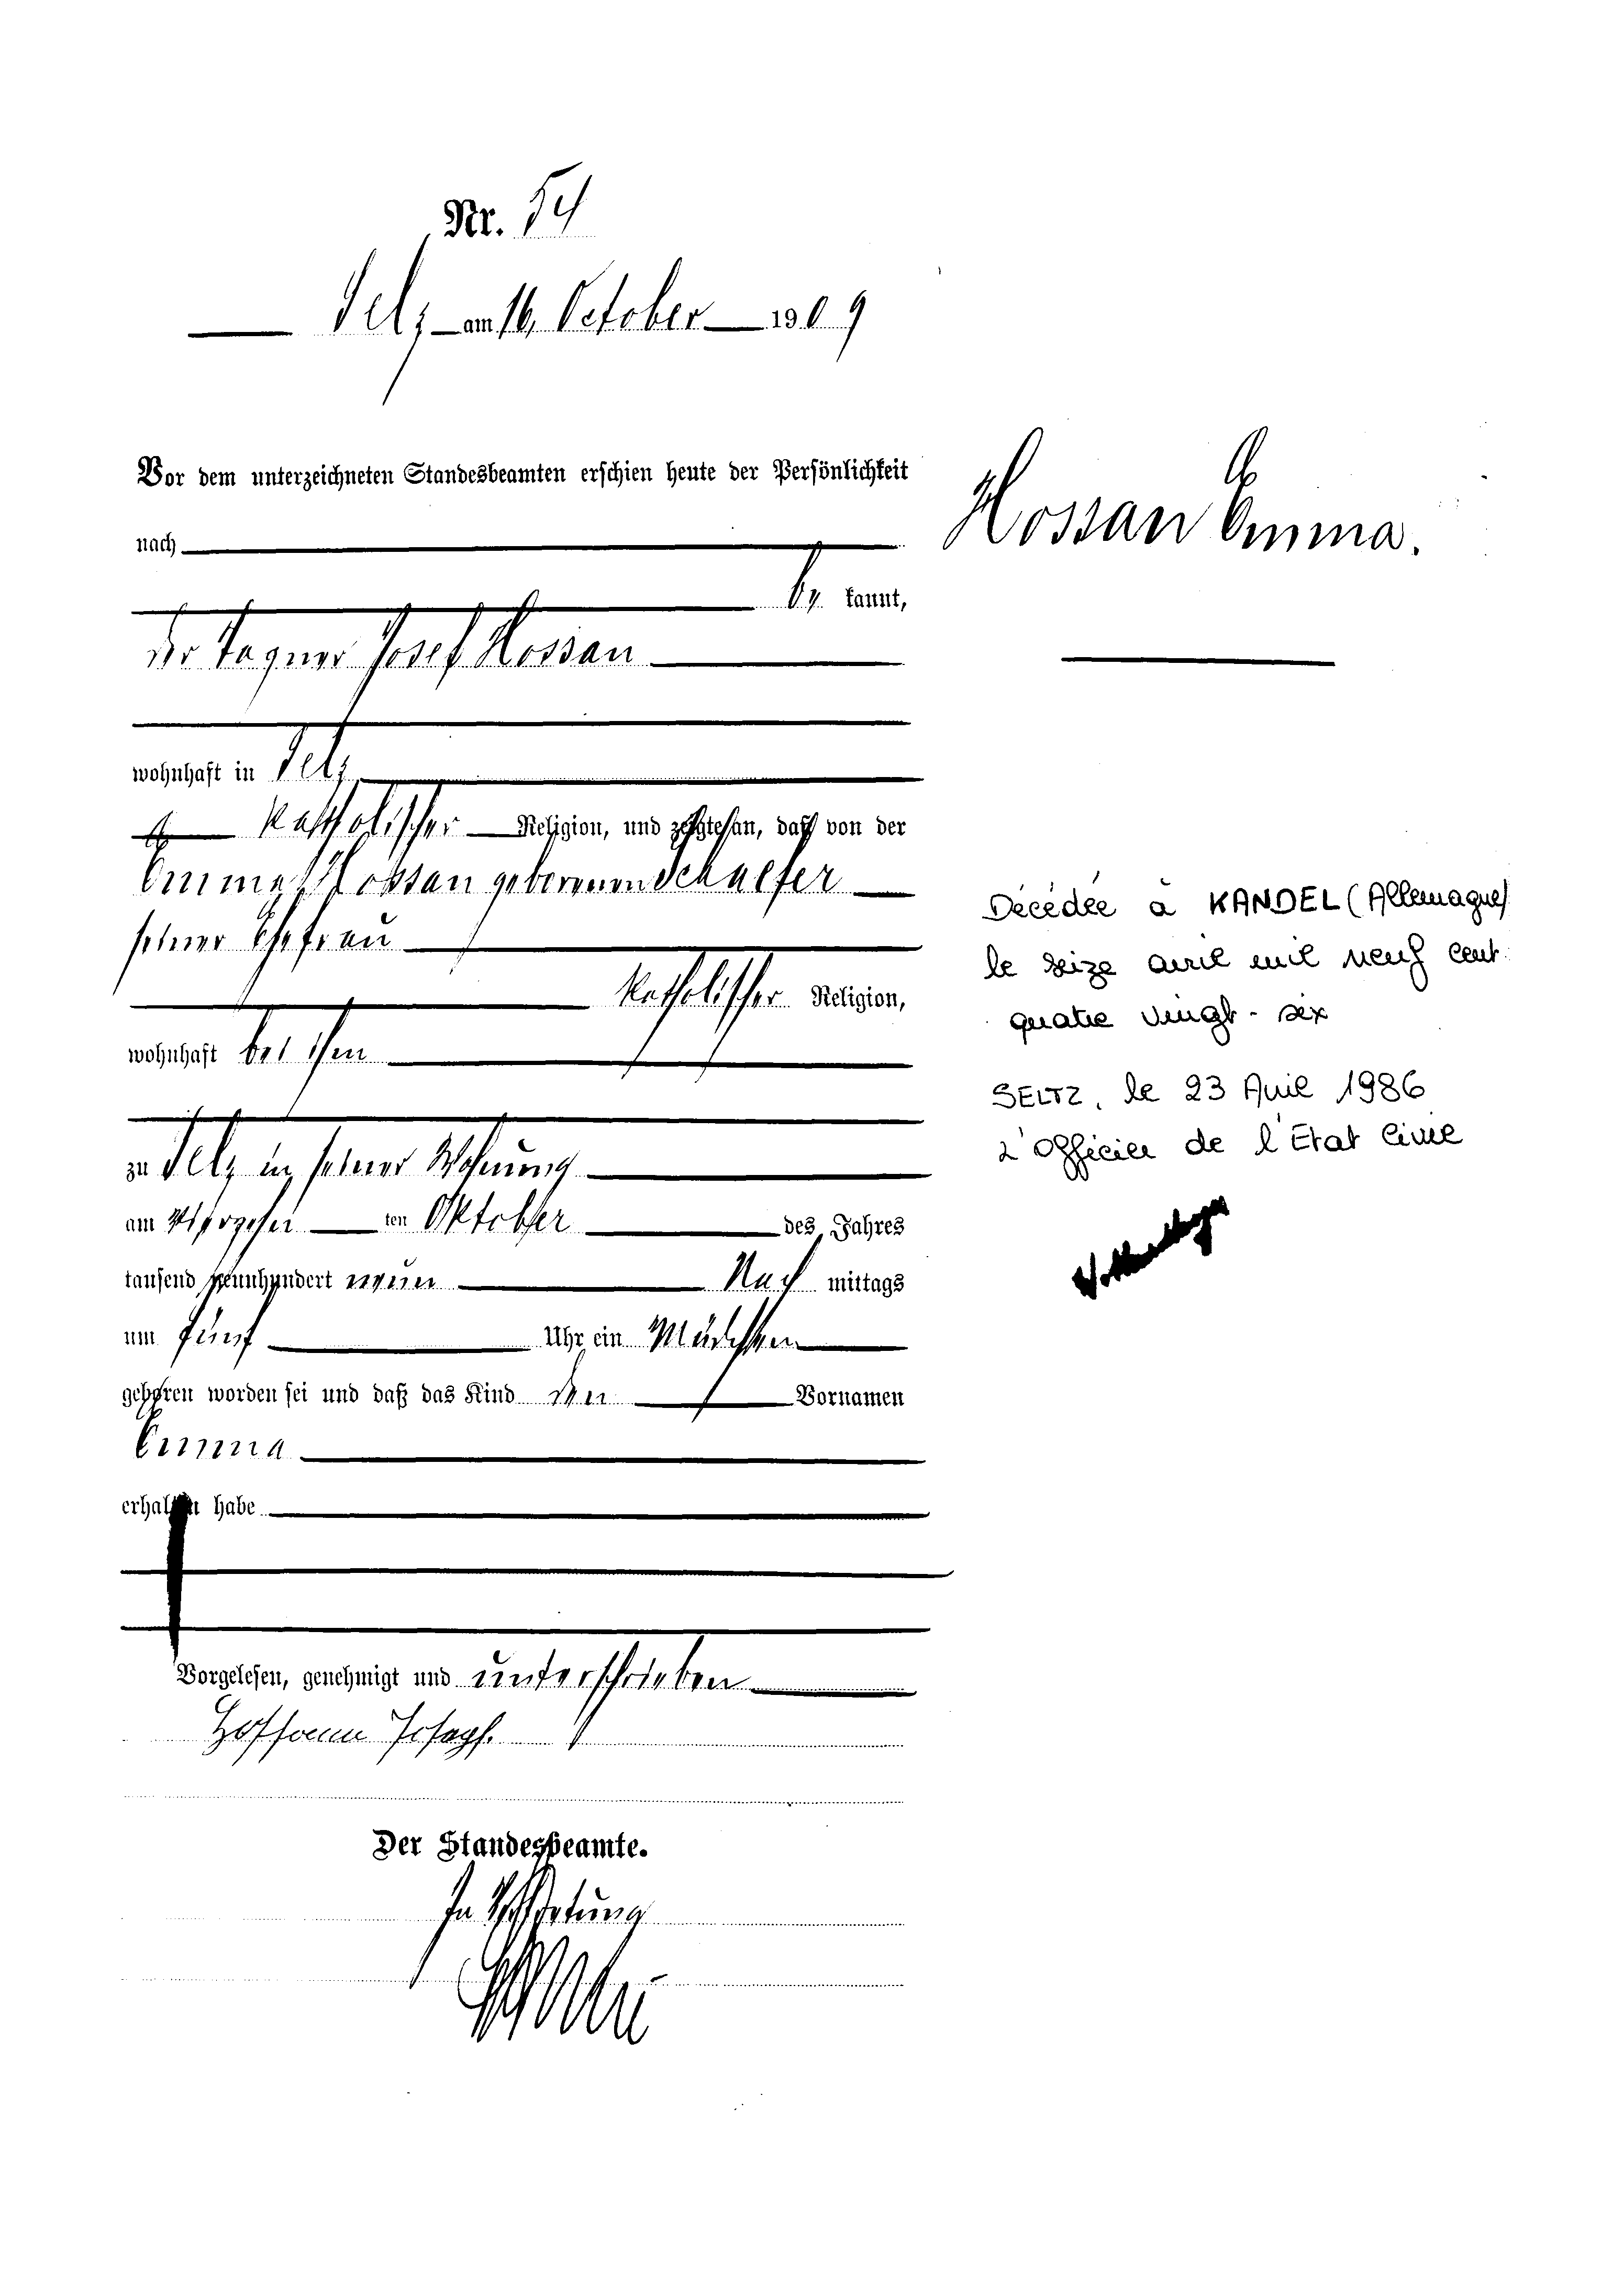 Nr. 54
Selz am 16. October 1909
Vor dem unterzeichneten Standesbeamten erschien heute der Persönlichkeit
nach
be kannt,
der Tagner Josef Hossan
wohnhaft in Selz
katholischer Religion, und zeigte an, daß von der
Emma Hossan geborenen Schaefer
seiner Ehefrau
katholischer Religion,
wohnhaft bei ihm
zu Selz in seiner Wohnung
am vierzehn ten Oktober des Jahres
tausend neunhundert neun Nach mittags
um fünf Uhr ein Mädchen
geboren worden sei und daß das Kind den Vornamen
Emma
erhalten habe
Vorgelesen, genehmigt und unterschrieben
Hossann Joseph.
Der Standesbeamte.
In Vertretung
Hossan Emma.
Décédée à KANDEL (Allemagne)
le seize avril mil neuf cent
quatre vingt-six
SELTZ, le 23 Avril 1986
L'Officier de l'État Civil